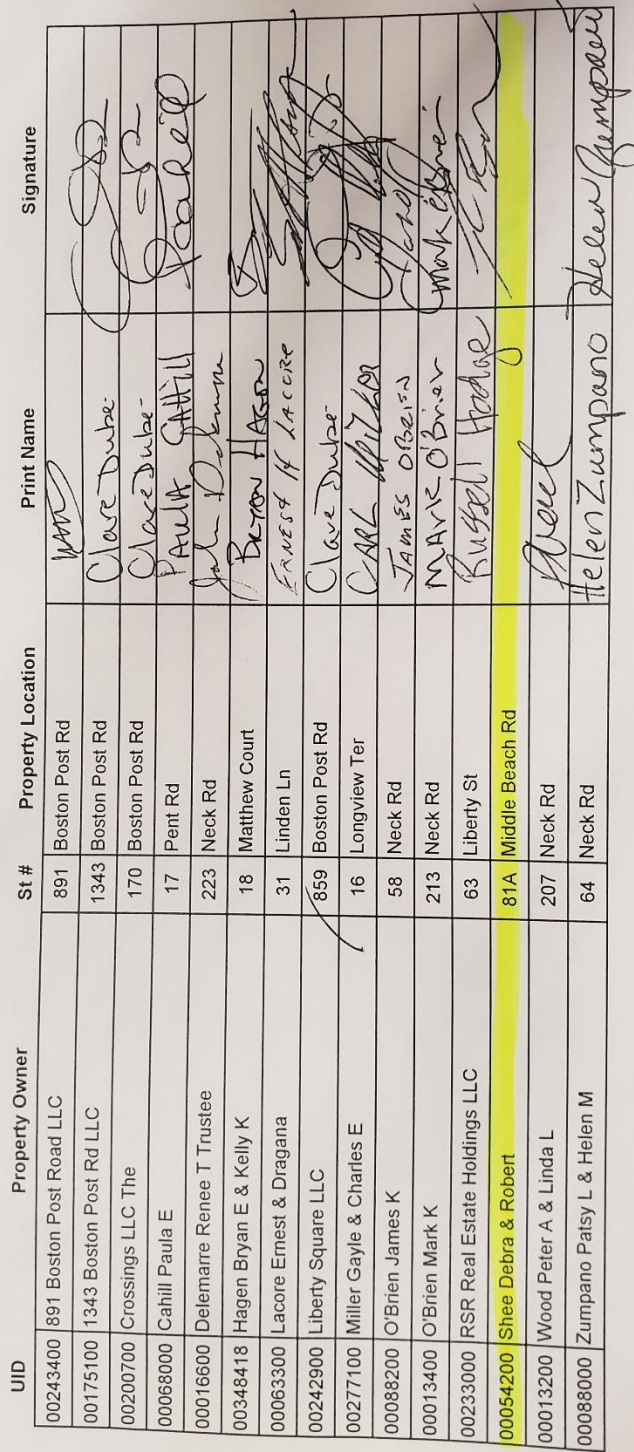 UID Property Owner St # Property Location Print Name Signature
00243400 891 Boston Post Road LLC 891 Boston Post Rd
00175100 1343 Boston Post Rd LLC 1343 Boston Post Rd Clare Dube
00200700 Crossings LLC The 170 Boston Post Rd Clare Dube
00068000 Cahill Paula E 17 Pent Rd PAULA CAHILL
00016600 Delemarre Renee T Trustee 223 Neck Rd John
00348418 Hagen Bryan E & Kelly K 18 Matthew Court BRYAN HAGEN
00063300 Lacore Ernest & Dragana 31 Linden Ln ERNEST H LACORE
00242900 Liberty Square LLC 859 Boston Post Rd Clare Dube
00277100 Miller Gayle & Charles E 16 Longview Ter CARL MILLER
00088200 O'Brien James K 58 Neck Rd JAMES OBRIEN
00013400 O'Brien Mark K 213 Neck Rd MARK O'Brien Mark O'Brien
00233000 RSR Real Estate Holdings LLC 63 Liberty St Russell Hodge
00054200 Shee Debra & Robert 81A Middle Beach Rd
00013200 Wood Peter A & Linda L 207 Neck Rd
00088000 Zumpano Patsy L & Helen M 64 Neck Rd Helen Zumpano Helen Zumpano